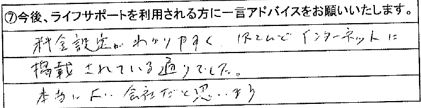 ⑦今後、ライフサポートを利用される方に一言アドバイスをお願いいたします。
料金設定がわかりやすく インターネットに
掲載されている通りでした。
本当によい会社だと思います